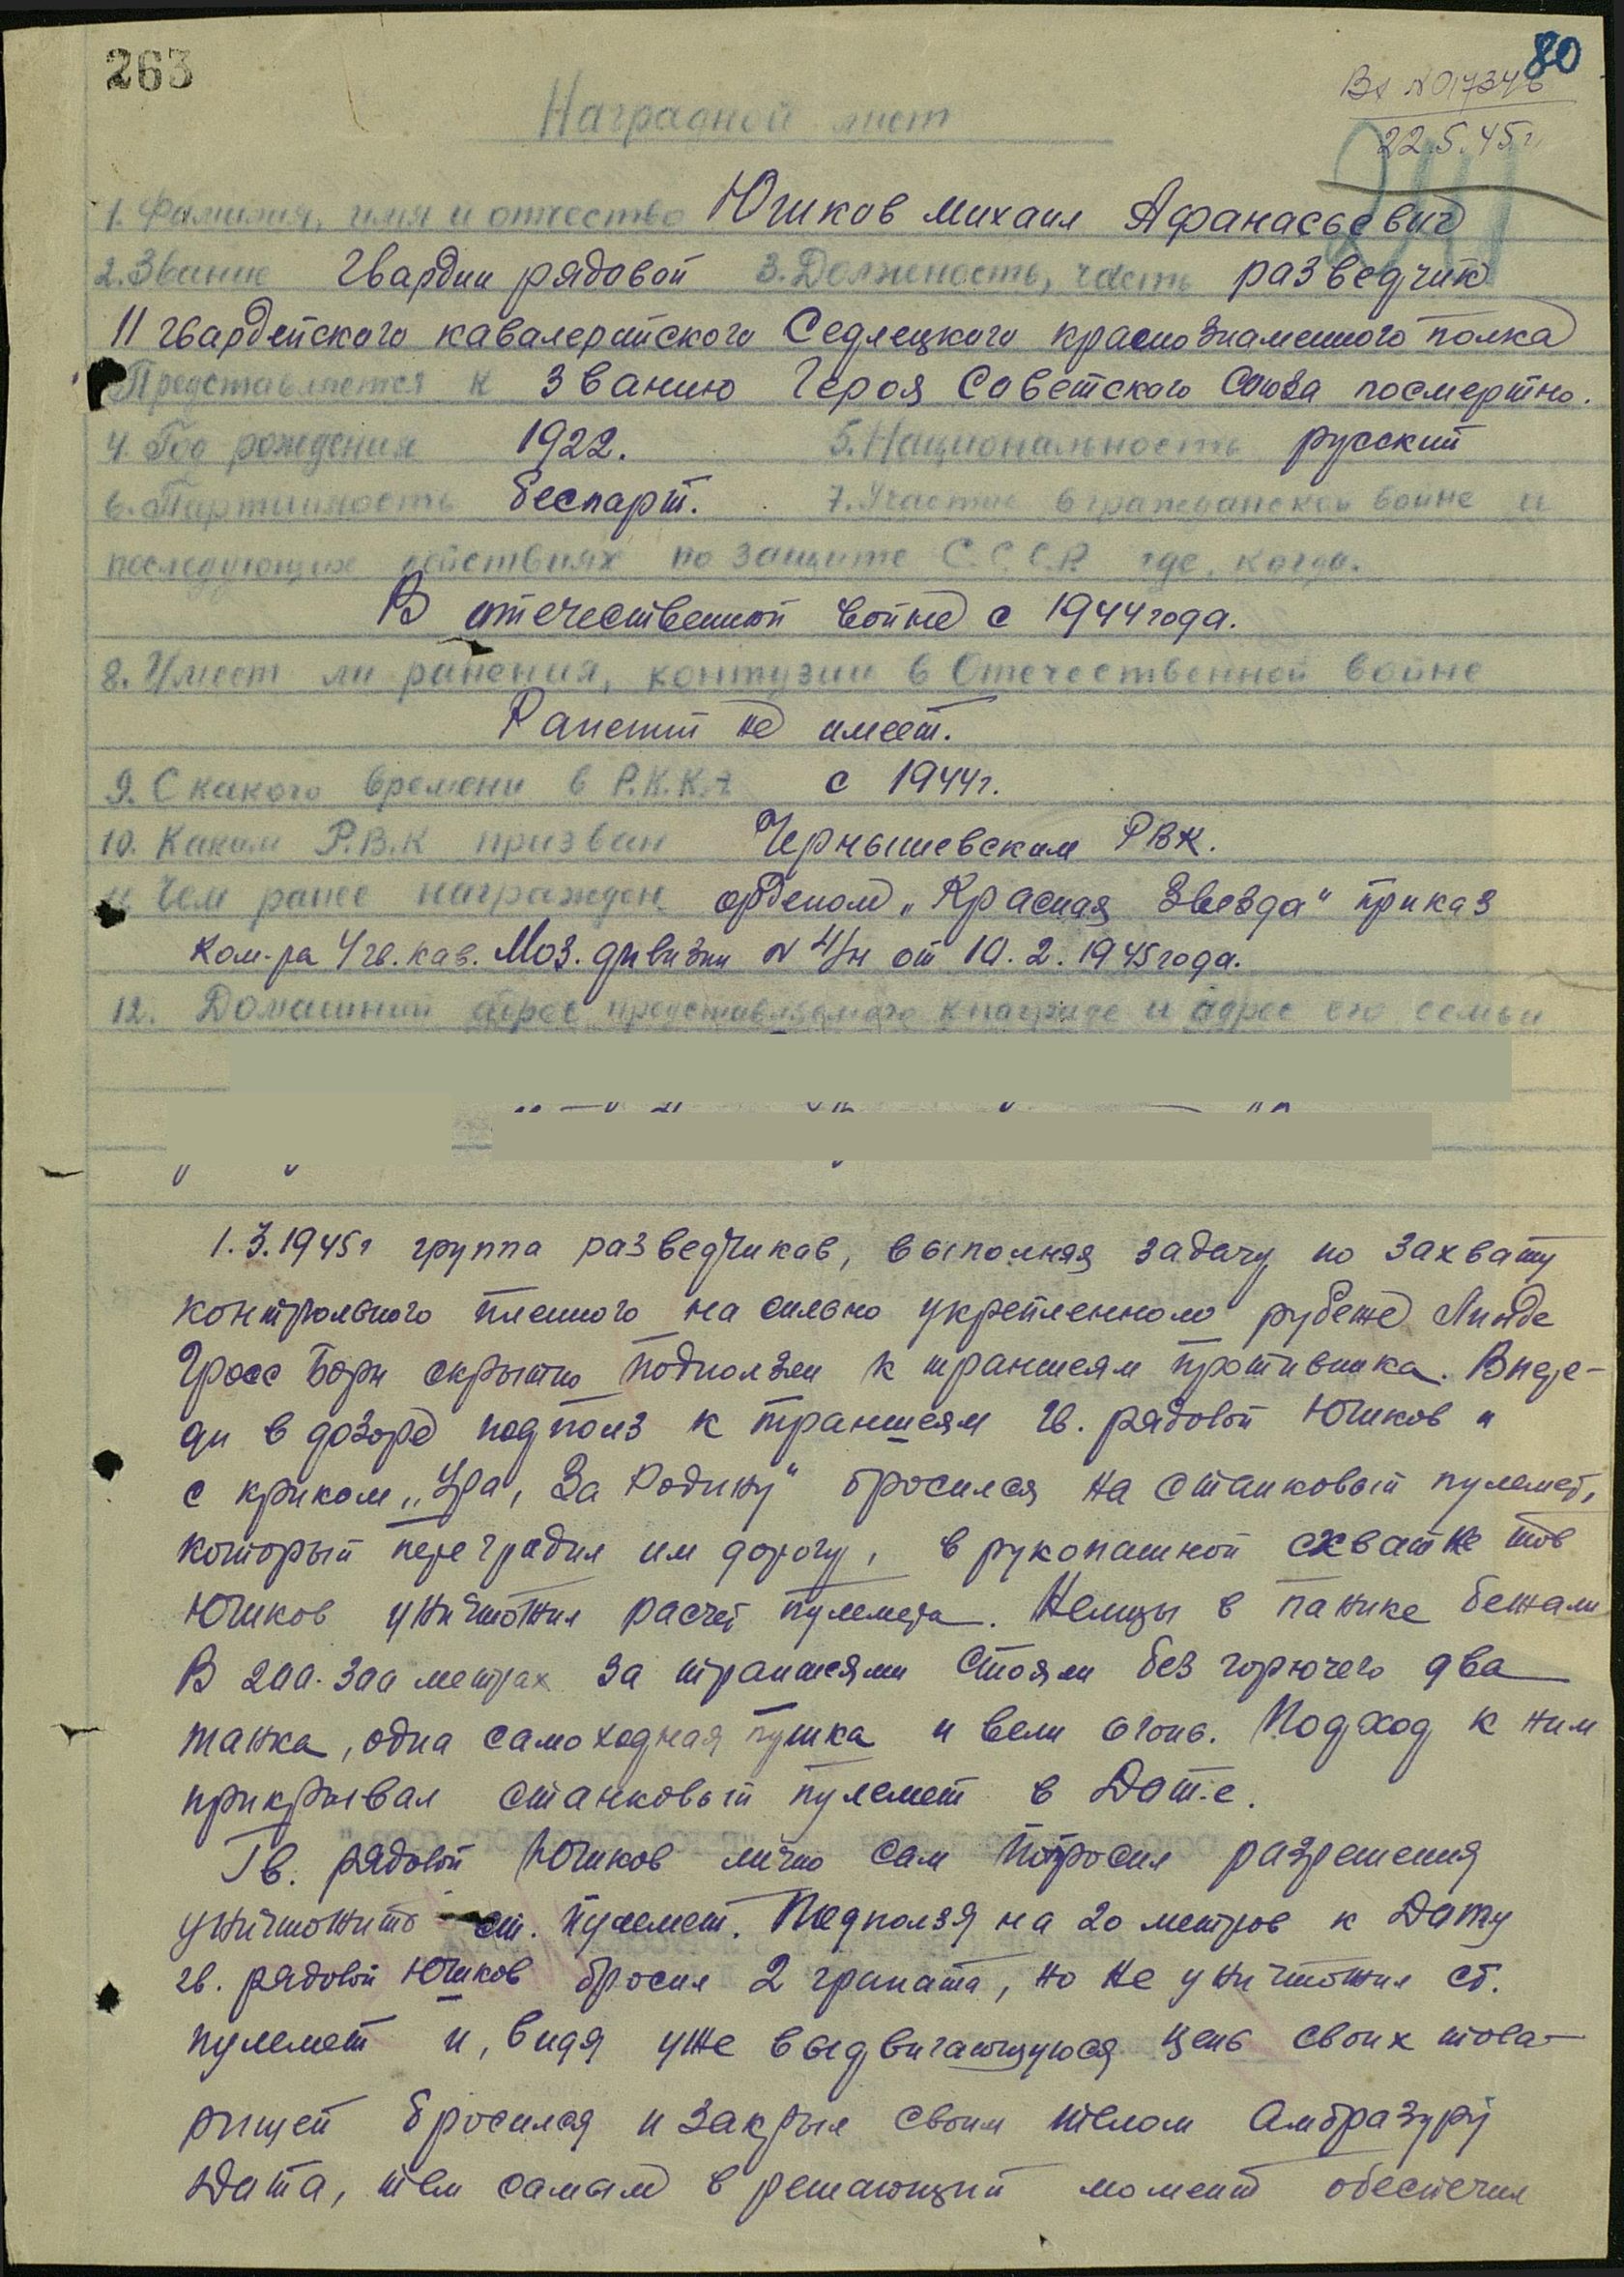 263
80
Вх N 017346
22.5.45г.
Наградной лист
1. Фамилия, имя и отчество Юшков Михаил Афанасьевич
2. Звание Гвардии рядовой 3. Должность, часть разведчик
11 гвардейского кавалерийского Седлецкого краснознаменного полка
Представляется к званию Героя Советского Союза посмертно.
4. Год рождения 1922. 5. Национальность русский
6. Партийность беспарт. 7. Участие в гражданской войне и
последующих действиях по защите С.С.С.Р. где, когда.
В отечественной войне с 1944 года.
8. Имеет ли ранения, контузии в Отечественной войне
Ранений не имеет.
9. С какого времени в Р.К.К.А с 1944г.
10. Каким Р.В.К призван Чернышевским РВК.
11. Чем ранее награжден орденом „Красная Звезда" приказ
Ком-ра 4 гв. кав. Моз. дивизии N 4/н от 10.2.1945 года.
12. Домашний адрес представляемого к награде и адрес его семьи
1.3.1945г группа разведчиков, выполняя задачу по захвату
контрольного пленного на сильно укрепленном рубеже Линде
Гросс Борн скрытно подползли к траншеям противника. Впере-
ди в дозоре подполз к траншеям гв. рядовой Юшков и
с криком „Ура, За Родину" бросился на станковый пулемет,
который перегродил им дорогу, в рукопашной схватке тов
Юшков уничтожил расчет пулемета. Немцы в панике бежали
В 200-300 метрах за траншеями стояли без горючего два
танка, одна самоходная пушка и вели огонь. Подход к ним
прикрывал станковый пулемет в Дот-е.
Гв. рядовой Юшков лично сам попросил разрешения
уничтожить ст. пулемет. Подползя на 20 метров к Доту
гв. рядовой Юшков бросил 2 граната, но не уничтожил ст.
пулемет и, видя уже выдвигающуюся цепь своих това-
рищей бросился и закрыл своим телом амбразуру
Дота, тем самым в решающий момент обеспечил